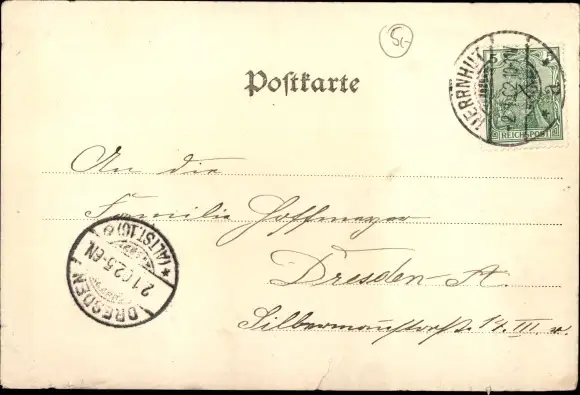 5.-
Postkarte
HERRNHUT
5
REICHSPOST
a
An die
Familie Hoffmeyer
Dresden-A.
Silbermannstraße 14. III. r.
DRESDEN
* (ALTST.16) e
2 1 02 5-6N.